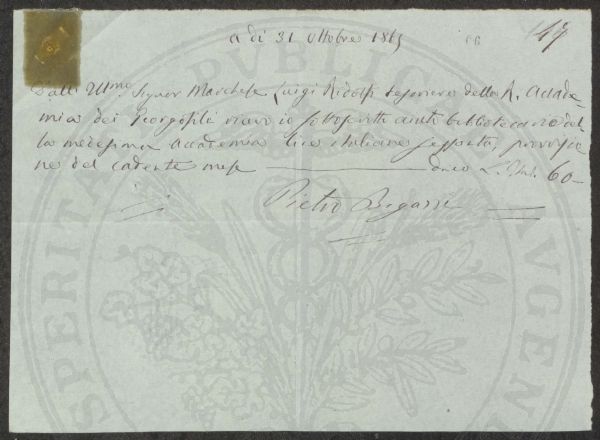 a dì 31 Ottobre 186
47
Dall' Illmo Signor Marchese Luigi Ridolfi Tesoriere della R. Accade-
mia dei Georgofili ricevo io sottoscritto aiuto bibliotecario del-
la medesima Accademia lire italiane sessanta, provvisio
ne del cadente mese dico L. Ital. 60—
Pietro
PROSPERITATI PUBLICAE AUGENDAE